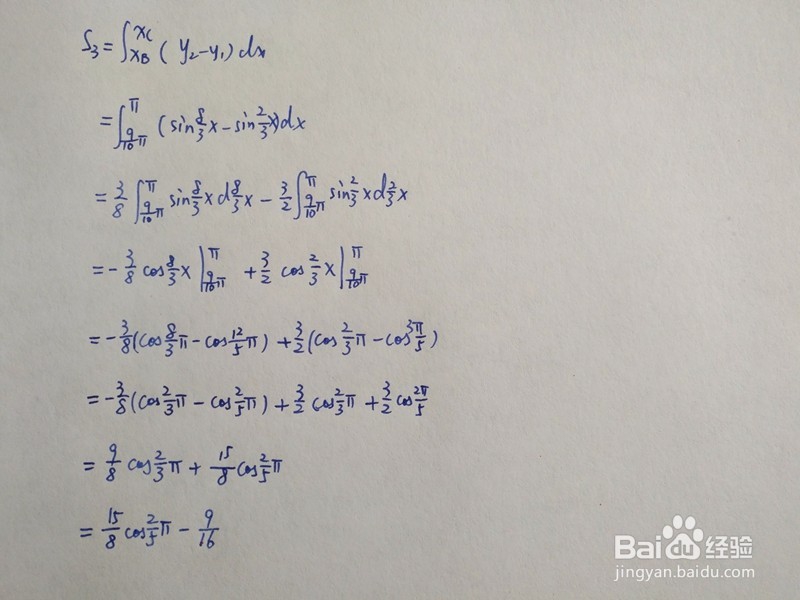 S₃=∫_{x_B}^{x_C} (y₂-y₁)dx
=∫_{9/10π}^{π} (sin8/3x-sin2/3x)dx
=3/8∫_{9/10π}^{π} sin8/3xd8/3x-3/2∫_{9/10π}^{π} sin2/3xd2/3x
=-3/8cos8/3x|_{9/10π}^{π}+3/2cos2/3x|_{9/10π}^{π}
=-3/8(cos8/3π-cos12/5π)+3/2(cos2/3π-cos3π/5)
=-3/8(cos2/3π-cos2/5π)+3/2cos2/3π+3/2cos2π/5
=9/8cos2/3π+15/8cos2/5π
=15/8cos2/5π-9/16
Baidu经验
jingyan.baidu.com